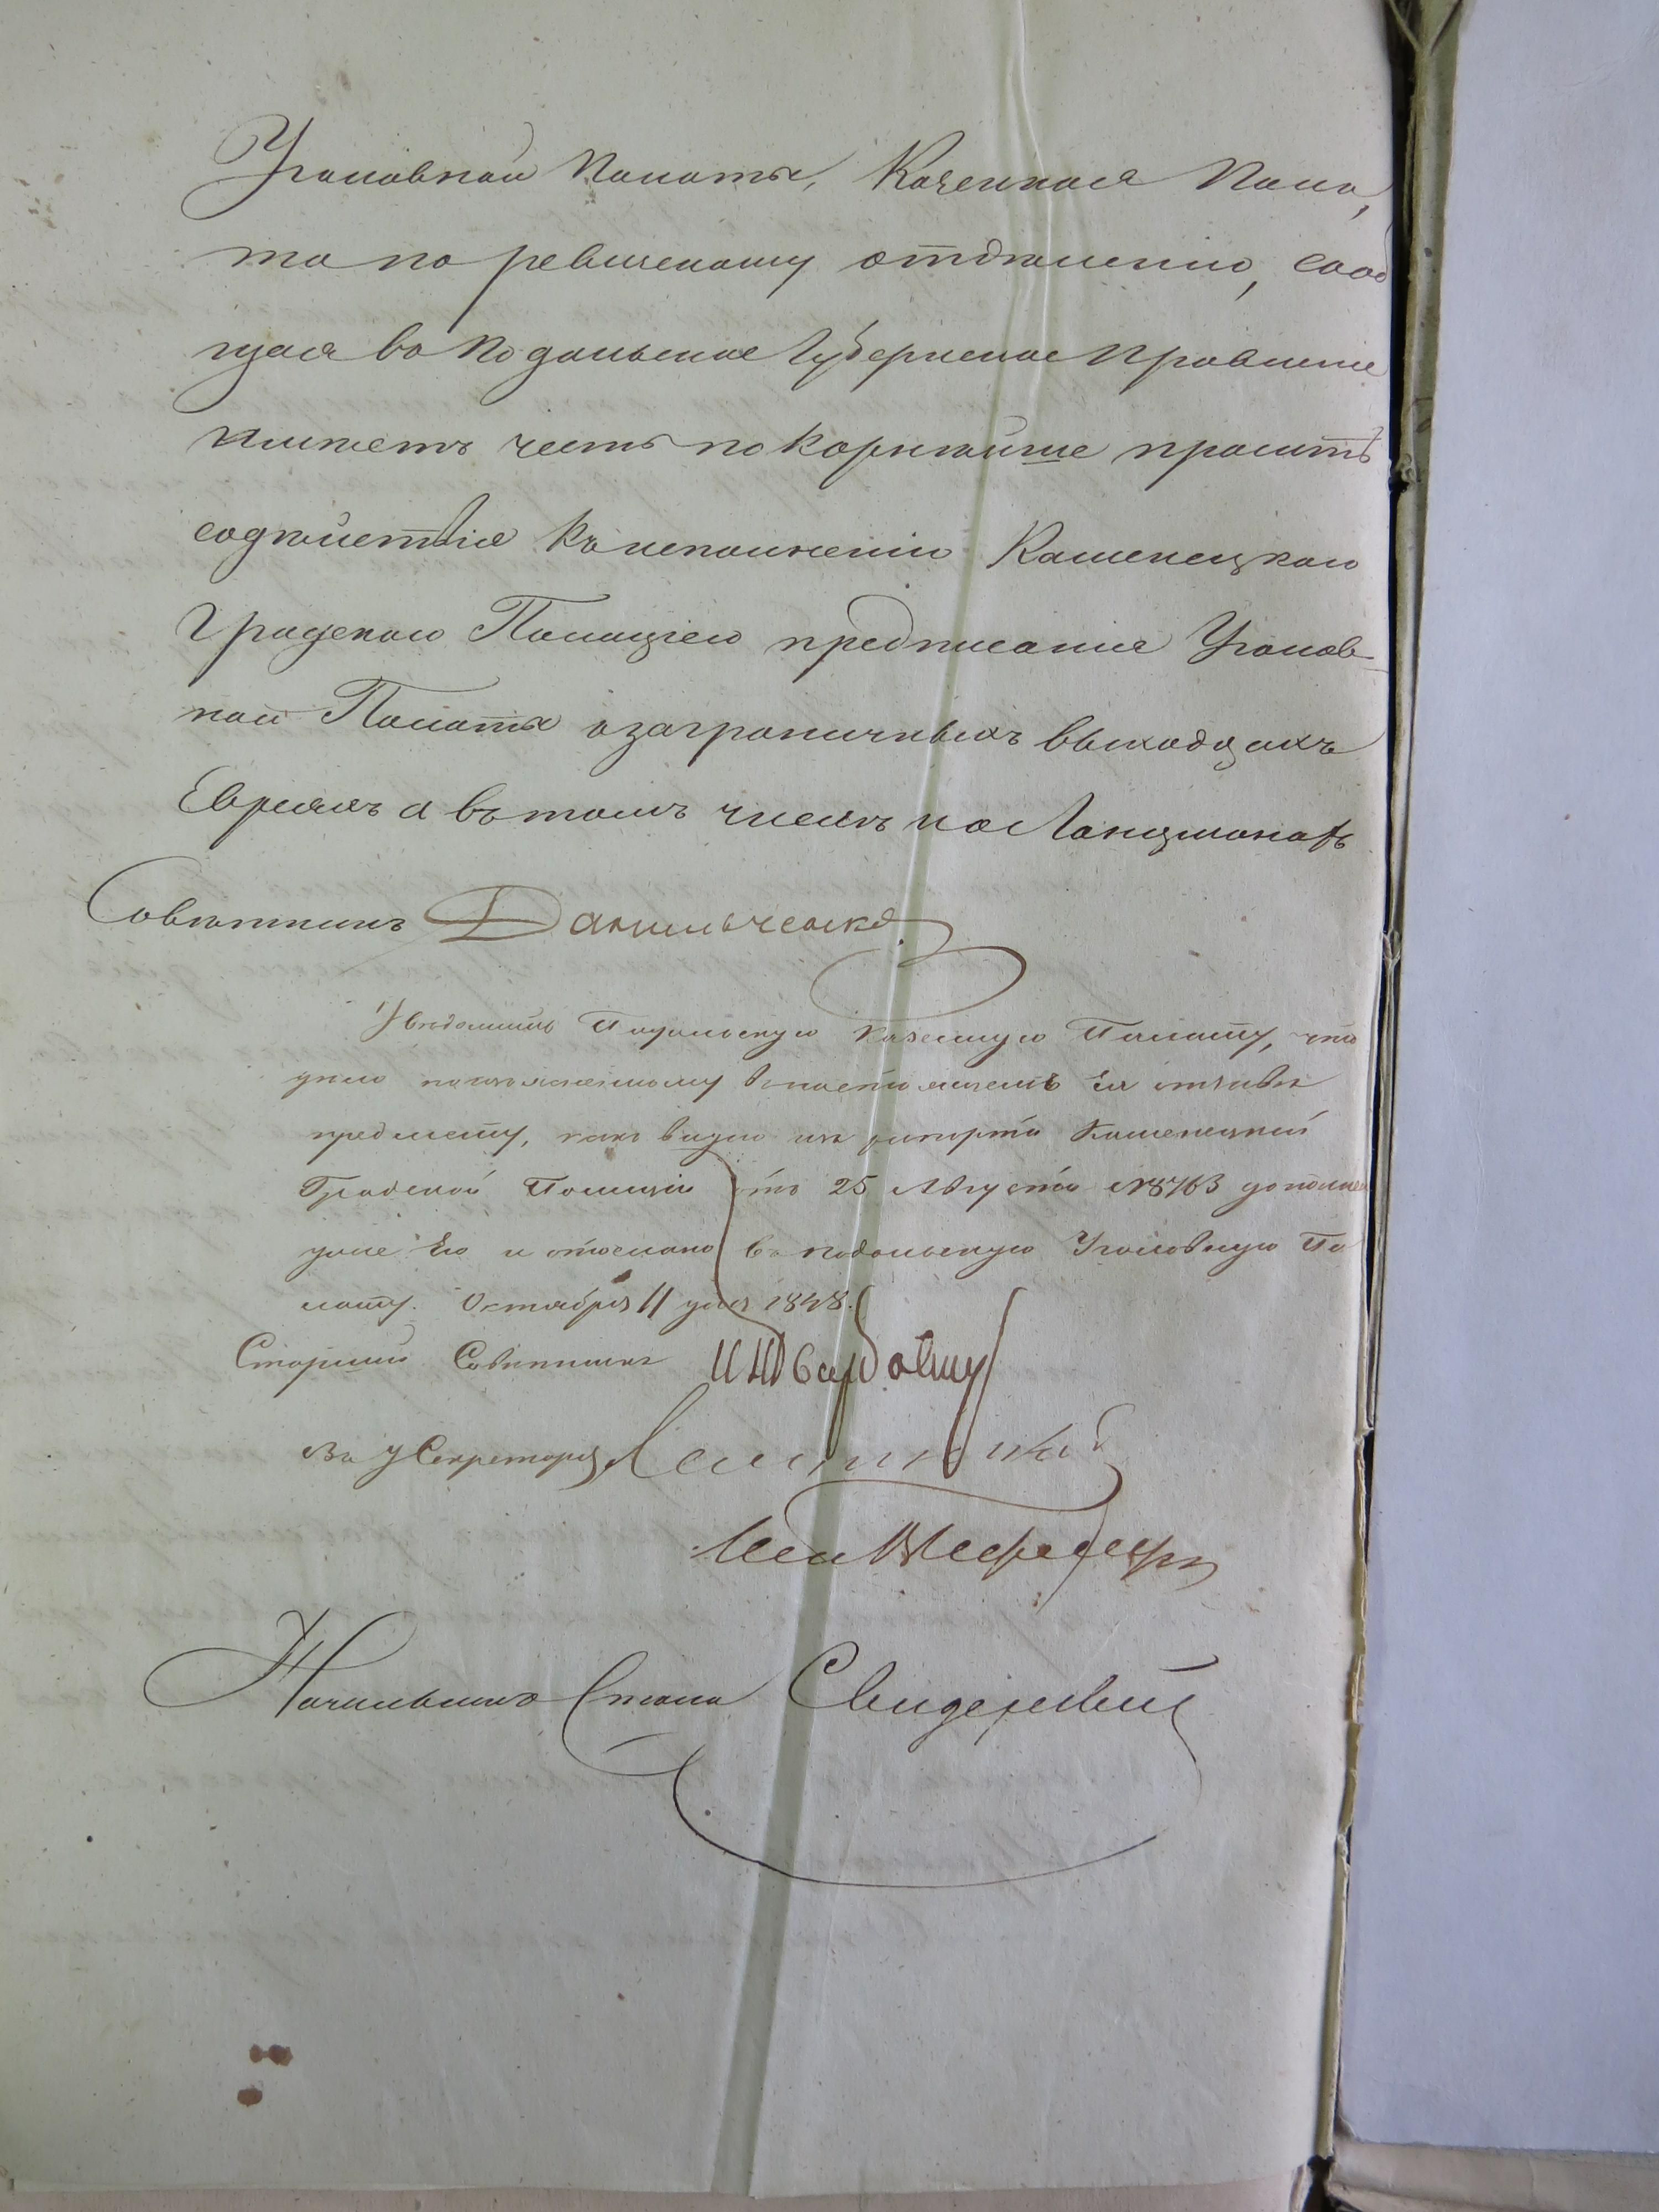 Уголовной Палаты, Казенная Пала,
та по ревизскому отдѣленію, сооб
щая во Подольское Губернское Правленіе
имѣетъ честь покорнѣйше просить
содѣйствія къ исполненію Каменецкою
Градскою Полиціею предписанія Уголов-
ной Палаты о заграничныхъ выходцахъ
Евреяхъ а въ томъ числѣ и о Ланцманахъ
Совѣтникъ Данильченко
Увѣдомить Подольскую Казенную Палату, что
дѣло по изъясненному въ настоящемъ Ея отзывѣ
предмету, какъ видно изъ рапорта Каменецкой
Градской Полиціи отъ 25 Августа №8763 дополнен
уже Ею и отослано въ Подольскую Уголовную Па
лату. Октября 11 дня 1848.
Старшій Совѣтникъ
За Секретаря
Начальникъ Стола Свидерскій